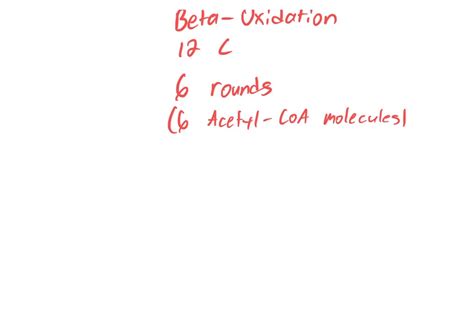 Beta-Oxidation
12 C
6 rounds
(6 Acetyl-CoA molecules)